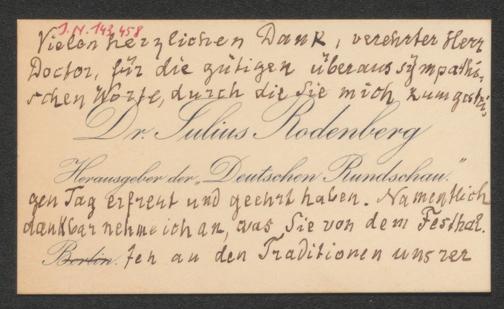 I.N. 143.458
Vielen herzlichen Dank, verehrter Herr
Doctor, für die gütigen überaus sympathi-
schen Worte, durch die Sie mich zum gestri-
Dr. Julius Rodenberg
Herausgeber der „Deutschen Rundschau."
gen Tag erfreut und geehrt haben. Namentlich
dankbar nehme ich an, was Sie von dem Festhal-
Berlin. ten an den Traditionen unsrer